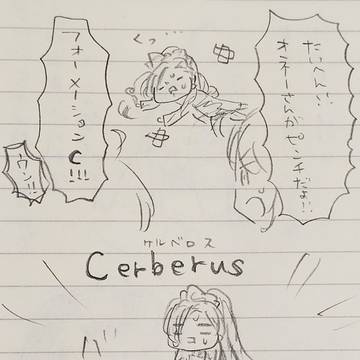 たいへん!!
オネーさんが
ピンチだよ!!
くっ…
フォーメーション
C!!!
ウン!!
ケルベロス
Cerberus
バ!!